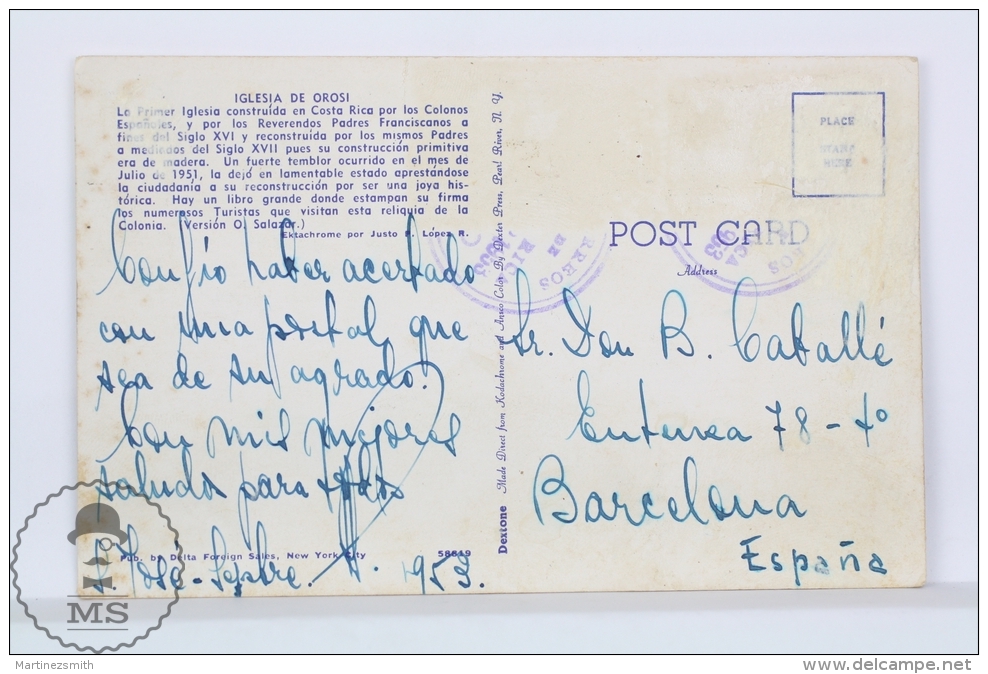 IGLESIA DE OROSI
La Primer Iglesia construída en Costa Rica por los Colonos
Españoles, y por los Reverendos Padres Franciscanos a
fines del Siglo XVI y reconstruida por los mismos Padres
a mediados del Siglo XVII pues su construcción primitiva
era de madera. Un fuerte temblor ocurrido en el mes de
Julio de 1951, la dejó en lamentable estado aprestándose
la ciudadanía a su reconstrucción por ser una joya his-
tórica. Hay un libro grande donde estampan su firma
los numerosos Turistas que visitan esta reliquia de la
Colonia. (Versión O. Salazar.)
Ektachrome por Justo P. López R.
Confío haber acertado
con una postal que
sea de su agrado.
Con mis mejores
saludos para todos
S. José - Sepbre. 1953.
Pub. by Delta Foreign Sales, New York City
58619
Dextone Made Direct from Kodachrome and Ansco Color By Dexter Press, Pearl River, N. Y.
PLACE
STAMP
HERE
POST CARD
Address
Sr. Don B. Caballé
Entenza 78 - 4º
Barcelona
España
MS
Martinezsmith
delcampe.net